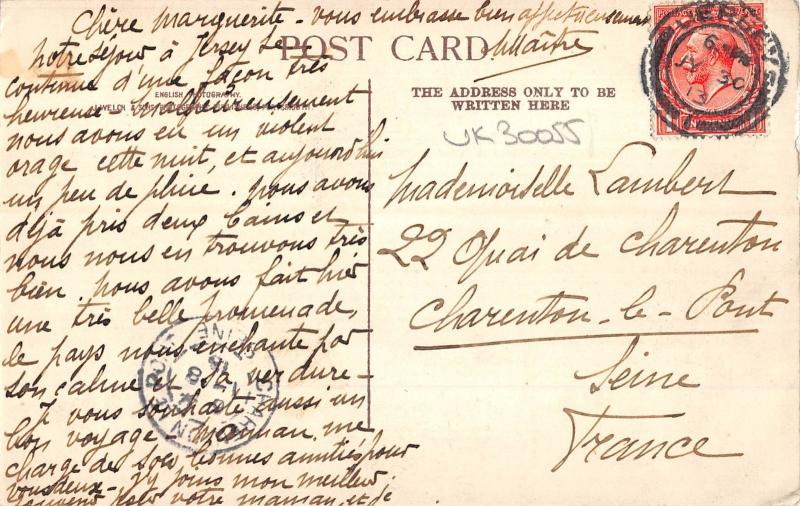 Chère Marguerite - vous embrasse bien affectueusement
POST CARD
Maître
Notre séjour à Jersey se
continue d'une façon très
heureuse - malheureusement
nous avons eu un violent
orage cette nuit, et aujourd'hui
un peu de pluie. nous avons
déjà pris deux bains et
nous nous en trouvons très
bien. nous avons fait hier
une très belle promenade,
le pays nous enchante par
son calme et sa verdure -
Je vous souhaite aussi un
bon voyage. Maman me
charge de ses bonnes amitiés pour
vous deux - J'y joins mon meilleur
souvenir pour votre maman et je
ENGLISH PHOTOGRAPHY.
THE ADDRESS ONLY TO BE
WRITTEN HERE
UK30055
Mademoiselle Lambert
22 Quai de Charenton
Charenton-le-Pont
Seine
France
JY 30
13
SEINE